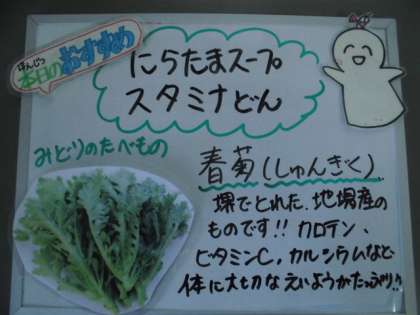 ほんじつ
本日のおすすめ
にらたまスープ
スタミナどん
みどりのたべもの
春菊(しゅんぎく)
堺でとれた、地場産の
ものです!! カロテン、
ビタミンC、カルシウムなど
体に大切なえいようがたっぷり!!